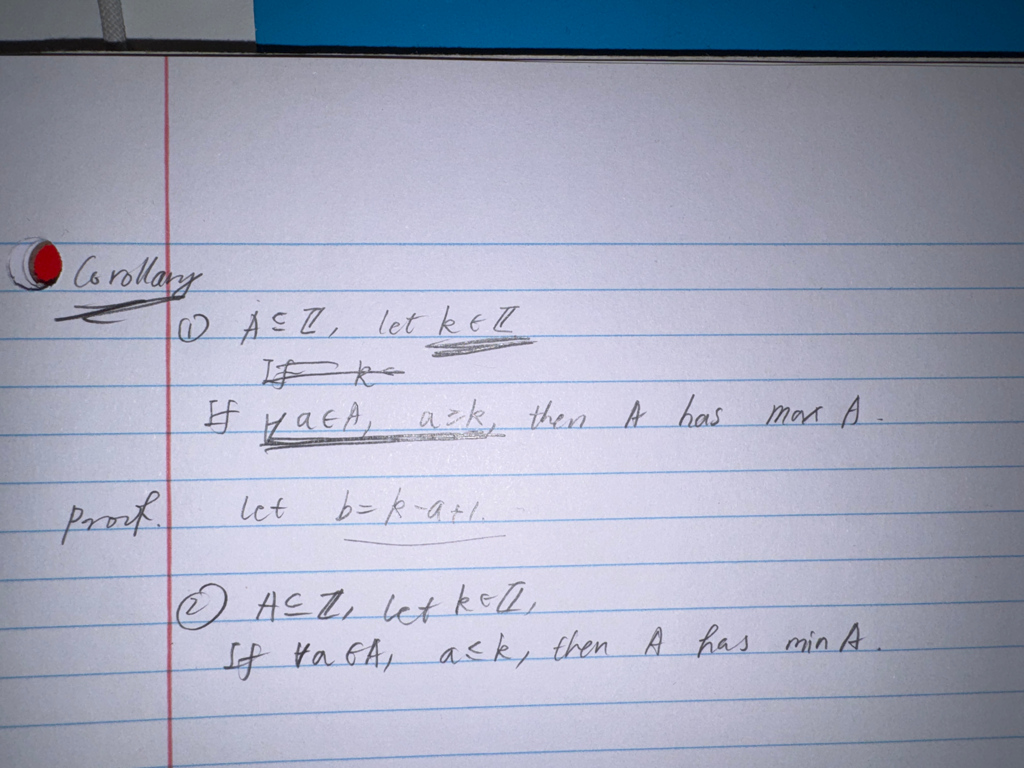 Corollary
① A ⊆ ℤ, let k ∈ ℤ
If k
If ∀a∈A, a≥k, then A has max A.
Proof. let b = k-a+1.
② A ⊆ ℤ, let k ∈ ℤ,
If ∀a∈A, a≤k, then A has min A.